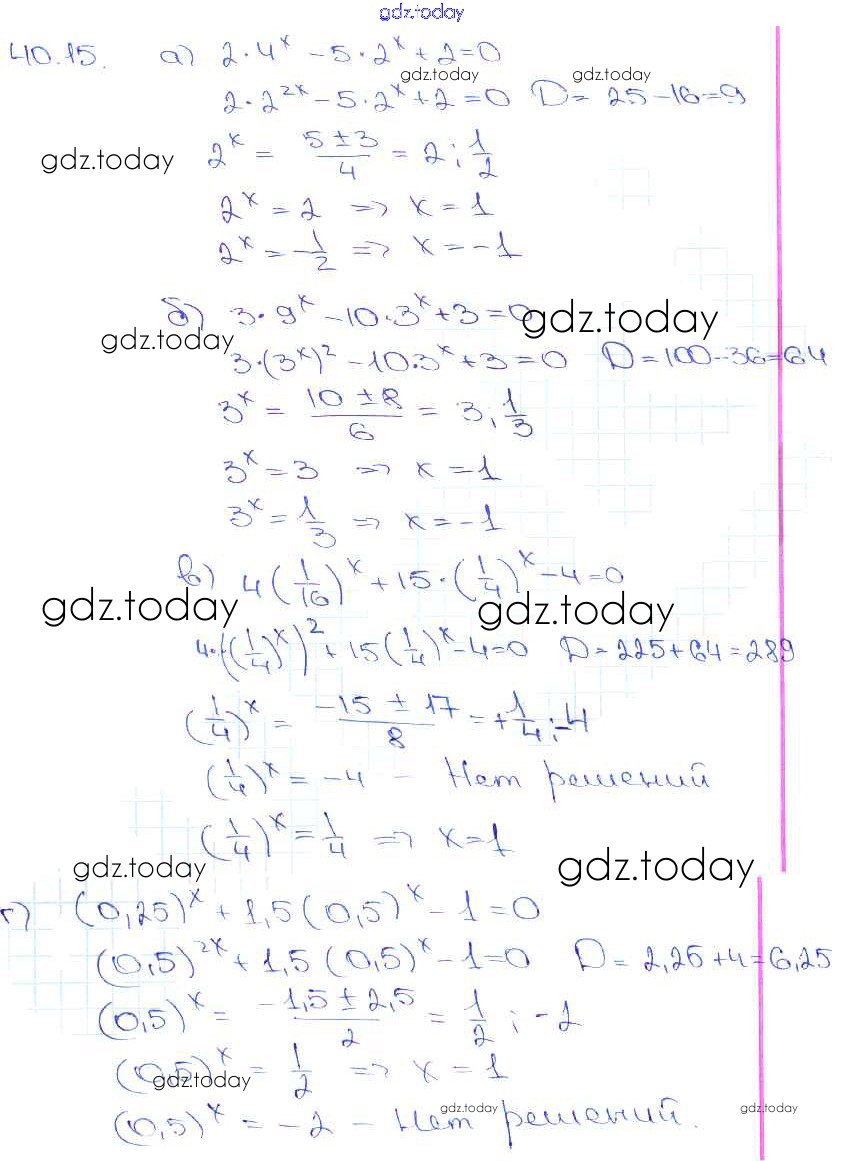 gdz.today
40.15. а) 2·4^x - 5·2^x + 2 = 0
gdz.today gdz.today
2·2^{2x} - 5·2^x + 2 = 0 D = 25 - 16 = 9
gdz.today
2^x = \frac{5 ± 3}{4} = 2; \frac{1}{2}
2^x = 2 => x = 1
2^x = \frac{1}{2} => x = -1
б) 3·9^x - 10·3^x + 3 = 0
gdz.today
gdz.today
3·(3^x)^2 - 10·3^x + 3 = 0 D = 100 - 36 = 64
3^x = \frac{10 ± 8}{6} = 3, \frac{1}{3}
3^x = 3 => x = 1
3^x = \frac{1}{3} => x = -1
в) 4(\frac{1}{16})^x + 15·(\frac{1}{4})^x - 4 = 0
gdz.today gdz.today
4·((\frac{1}{4})^x)^2 + 15(\frac{1}{4})^x - 4 = 0 D = 225 + 64 = 289
(\frac{1}{4})^x = \frac{-15 ± 17}{8} = +\frac{1}{4}; -4
(\frac{1}{4})^x = -4 - Нет решений
(\frac{1}{4})^x = \frac{1}{4} => x = 1
gdz.today gdz.today
г) (0,25)^x + 1,5(0,5)^x - 1 = 0
(0,5)^{2x} + 1,5(0,5)^x - 1 = 0 D = 2,25 + 4 = 6,25
(0,5)^x = \frac{-1,5 ± 2,5}{2} = \frac{1}{2}; -2
(0,5)^x = \frac{1}{2} => x = 1
gdz.today
(0,5)^x = -2 - Нет решений.
gdz.today gdz.today